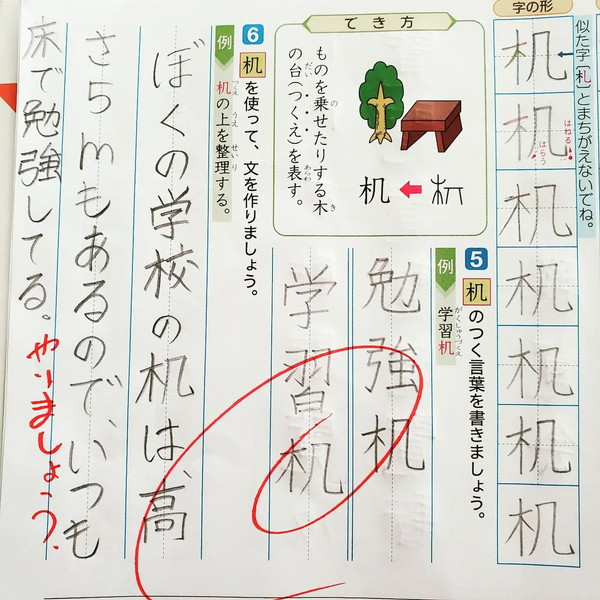 字の形
似た字〔札〕とまちがえないでね。
机
机
はねる
はらう
机
机
机
机
机
でき方
ものを乗せたりする木
の台（つくえ）を表す。
机
5 机のつく言葉を書きましょう。
例 学習机
勉強机
学習机
6 机を使って、文を作りましょう。
例 机の上を整理する。
ぼくの学校の机は、高
さ5mもあるので、いつも
床で勉強してる。
やりましょう。